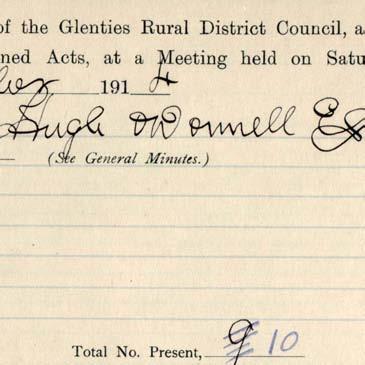 of the Glenties Rural District Council, a
ned Acts, at a Meeting held on Satu
ber 1914
Hugh O'Donnell Esq
(See General Minutes.)
Total No. Present, 9 10